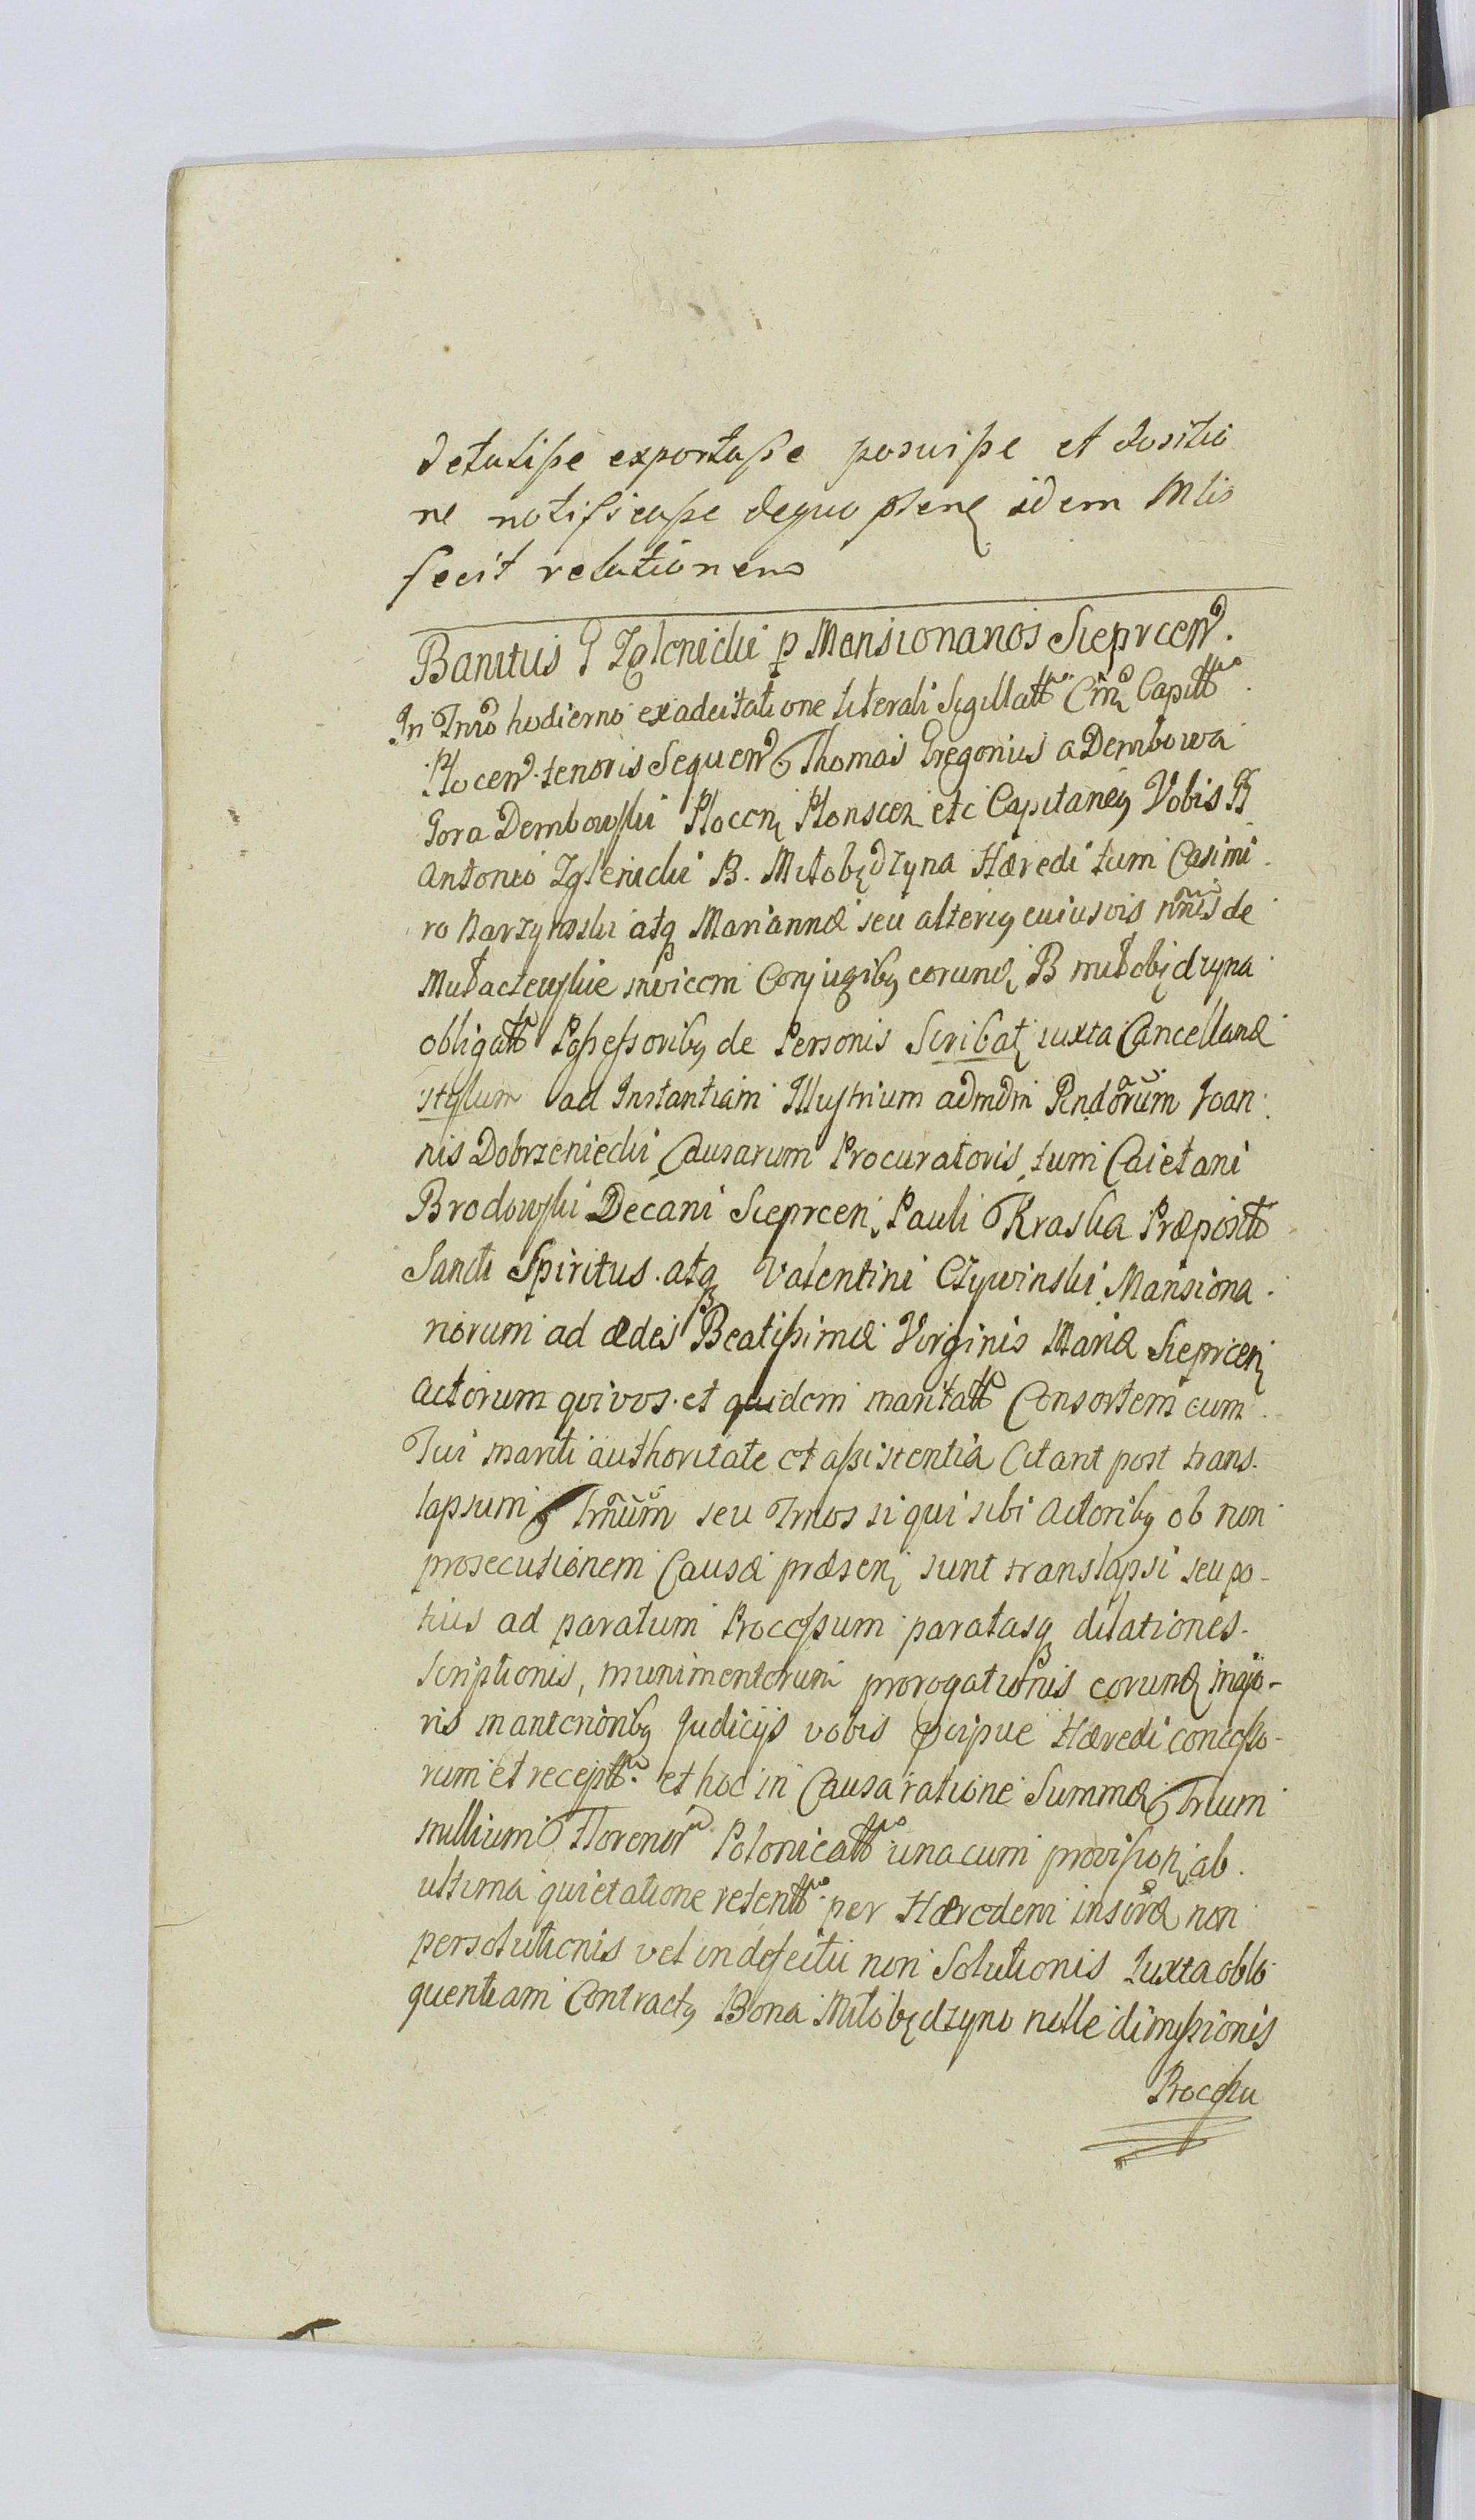 detulisse exportasse posuisse et dositio
ne notificasse dequo psenq idem Mlis
fecit relationem
Banitus G Zglenicki p Mansionarios Sieprcen.
In Tnrō hodierno exadcitatione literali Sigillatt Cm̃ Capitt
Plocen. tenoris Sequen Thomas Gregorius a Dembowa
Gora Dembowski Plocen Plonscen etc Capitaneq Vobis G
Antonio Zglenicki B. Milobędzyna Hæredi tum Casimi
ro Narzymski atq Mariannæ seu alteriq cuiusvis nñis de
invicem Conjugibq eorund B milobędzyna
obligatt Possessoribq de Personis Scribat iuxta Cancellariæ
stylum ad Instantiam Illustrium admdm Rndōrum Ioan
nis Dobrzeniecki Causarum Procuratoris, tum Caietani
Brodowski Decani Sieprcen, Pauli Kraska Præpositt
Sancti Spiritus. atq Valentini Czywinski Mansiona
riorum ad ædes Beatissimæ Virginis Mariæ Sieprcen
actorum qui vos. et quidem maritatt Consortem cum
Tui mariti authoritate et assistentia Citant post trans
lapsum Trñum seu Trnos si qui sibi Actoribq ob non
prosecutionem Causæ præsen sunt translapsi seu po-
tius ad paratum Processum paratasq dilationes
scriptionis, munimentorum prorogationis eorund majo-
ris in anterioribq Judicijs vobis pcipue Hæredi concesso-
rum et receptt. et hoc in Causa ratione Summæ Trium
millium Florenor Polonicatt unacum provision ab
ultima quietatione retentt per Hæredem insōræ non
persolutionis vel in defectu non Solutionis Iuxta oblo
quentiam Contractq Bona Milobędzyno nolle dimissionis
Processu